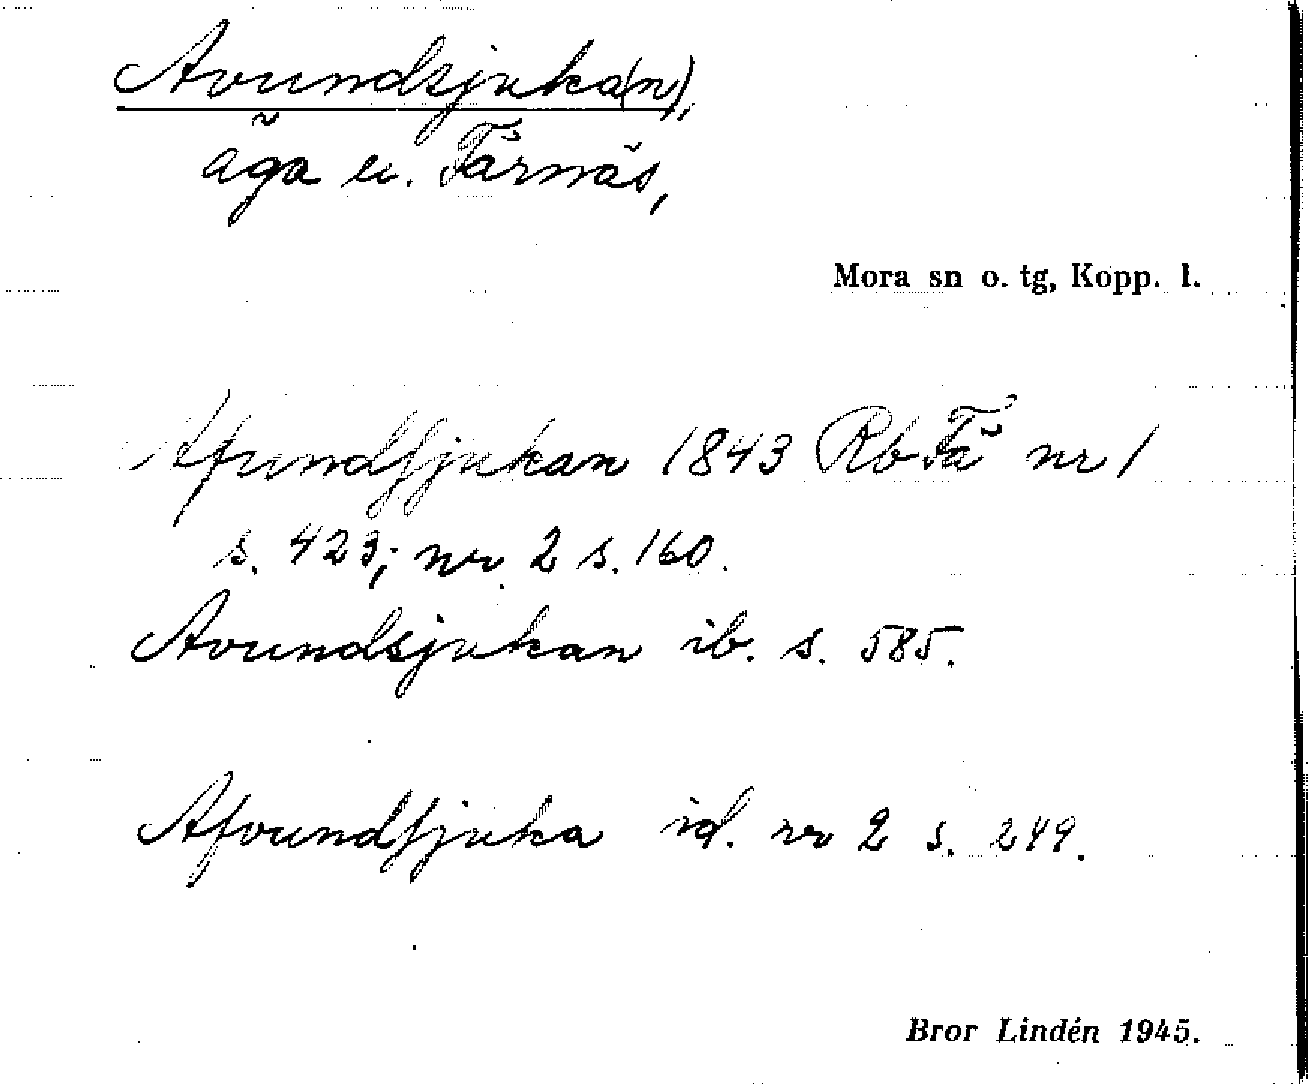 Avundsjuka(n),
äga u. Färnäs,
Mora sn o. tg, Kopp. l.
Afundsjukan 1843 Rb Fä nr 1
s. 423; nr 2 s. 160.
Avundsjukan ib. s. 585.
Afvundsjuka id. nr 2 s. 249.
Bror Lindén 1945.